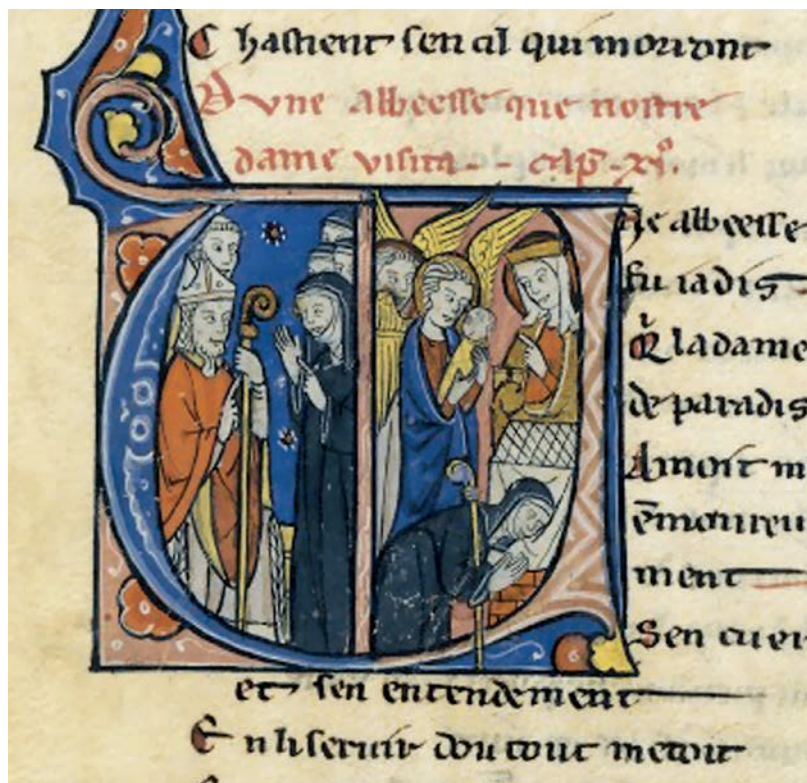 C hastient sen cil qui morront
D vne abbeesse que nostre
dame visita - - cap̄ - xͦ.
Ne abbeesse
fu iadis
Qͥ la dame
de paradis
Amoit m
ēmoureu
ment
Sen cuer
et sen entendement
E n li seruir dou tout metoit